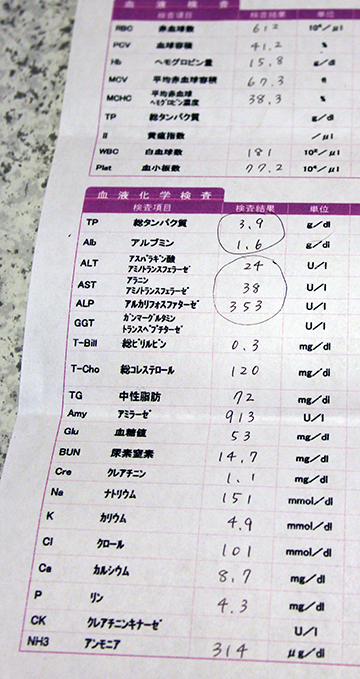 血液検査
検査項目 検査結果 単位
RBC 赤血球数 612 10⁴/μl
PCV 血球容積 41.2 %
Hb ヘモグロビン量 15.8 g/dl
MCV 平均赤血球容積 67.3
MCHC 平均赤血球
ヘモグロビン濃度 38.3 %
TP 総タンパク質 g/dl
II 黄疸指数 /μl
WBC 白血球数 181 10²/μl
Plat 血小板数 77.2 10⁴/μl
血液化学検査
検査項目 検査結果 単位
TP 総タンパク質 3.9 g/dl
Alb アルブミン 1.6 g/dl
ALT アスパラギン酸
アミノトランスフェラーゼ 24 U/l
AST アラニン
アミノトランスフェラーゼ 38 U/l
ALP アルカリフォスファターゼ 353 U/l
GGT ガンマーグルタミン
トランスペプチターゼ U/l
T-Bill 総ビリルビン 0.3 mg/dl
T-Cho 総コレステロール 120 mg/dl
TG 中性脂肪 72 mg/dl
Amy アミラーゼ 913 U/l
Glu 血糖値 53 mg/dl
BUN 尿素窒素 14.7 mg/dl
Cre クレアチニン 1.1 mg/dl
Na ナトリウム 151 mmol/dl
K カリウム 4.9 mmol/dl
Cl クロール 101 mmol/dl
Ca カルシウム 8.7 mg/dl
P リン 4.3 mg/dl
CK クレアチニンキナーゼ U/l
NH3 アンモニア 314 μg/dl